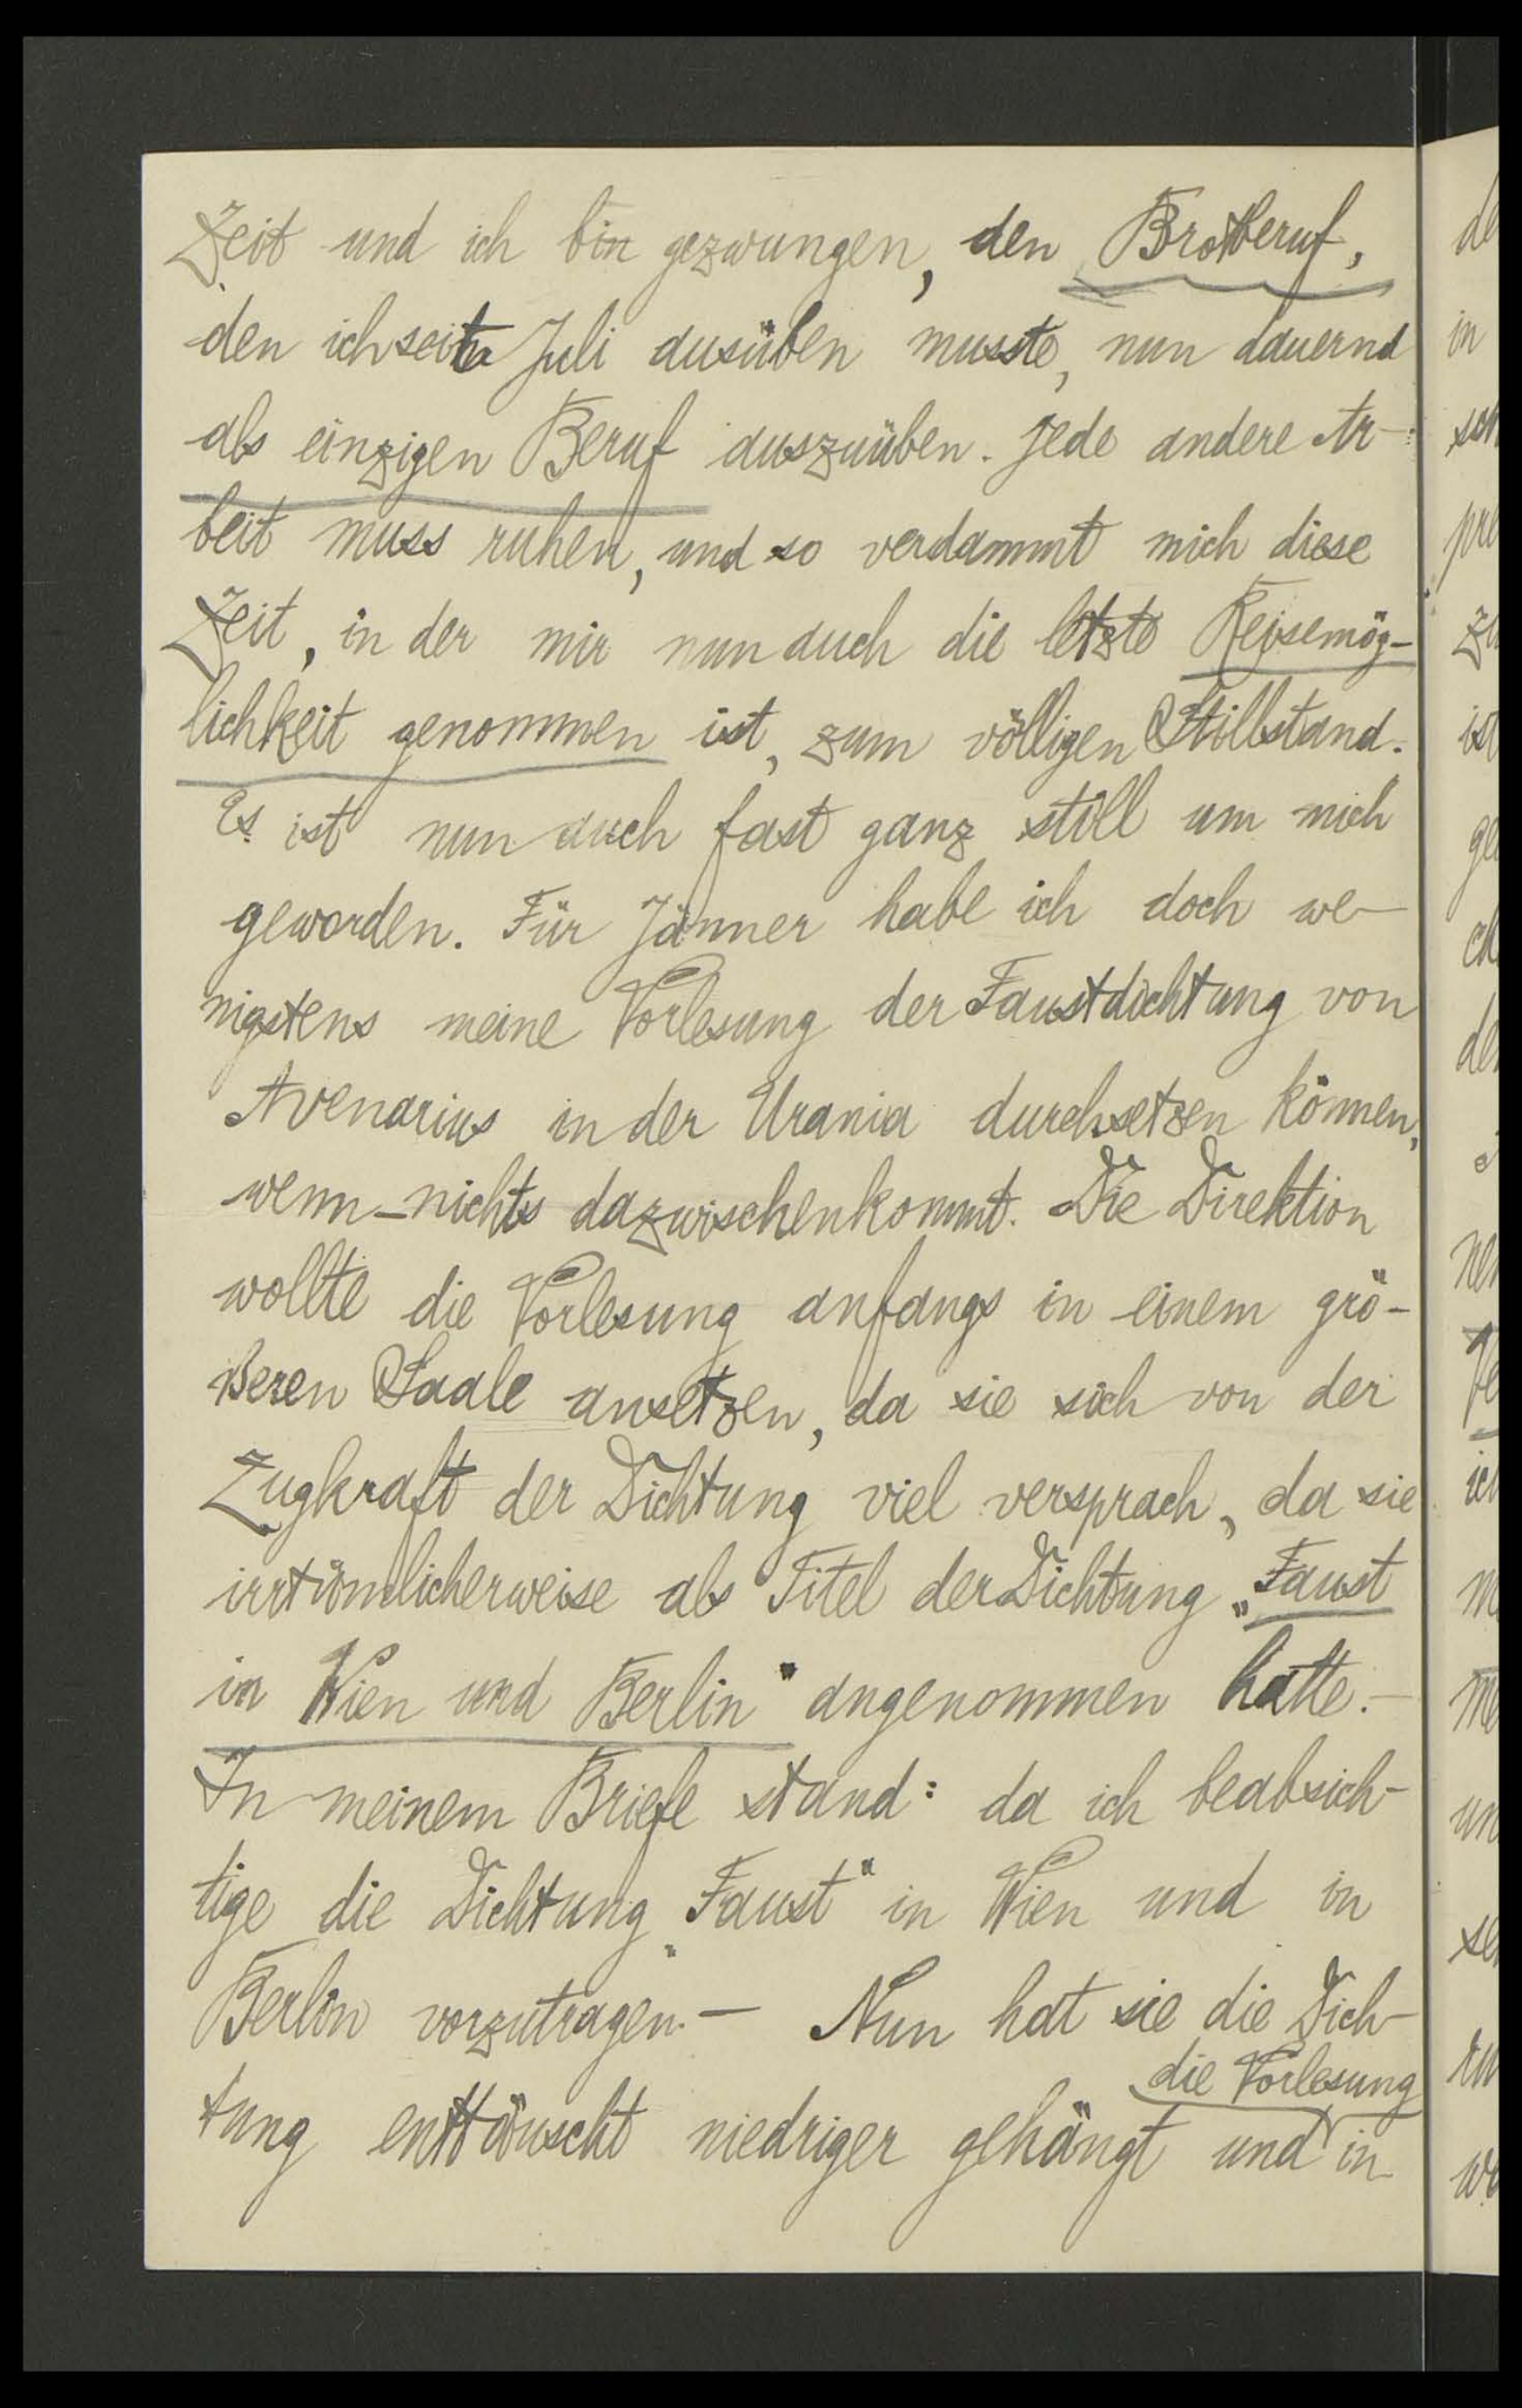 Zeit und ich bin gezwungen, den Brotberuf,
den ich seit Juli ausüben musste, nun dauernd
als einzigen Beruf auszuüben. Jede andere Ar-
beit muss ruhen, und so verdammt mich diese
Zeit, in der mir nun auch die letzte Reisemög-
lichkeit genommen ist, zum völligen Stillstand.
Es ist nun auch fast ganz still um mich
geworden. Für Jänner habe ich doch we-
nigstens meine Vorlesung der Faustdichtung von
Avenarius in der Urania durchsetzen können,
wenn nichts dazwischenkommt. Die Direktion
wollte die Vorlesung anfangs in einem grö-
ßeren Saale ansetzen, da sie sich von der
Zugkraft der Dichtung viel versprach, da sie
irrtümlicherweise als Titel der Dichtung „Faust
in Wien und Berlin" angenommen hatte.-
In meinem Briefe stand: da ich beabsich-
tige die Dichtung „Faust" in Wien und in
Berlin vorzutragen.— Nun hat sie die Dich-
die Vorlesung
tung enttäuscht niedriger gehängt und in